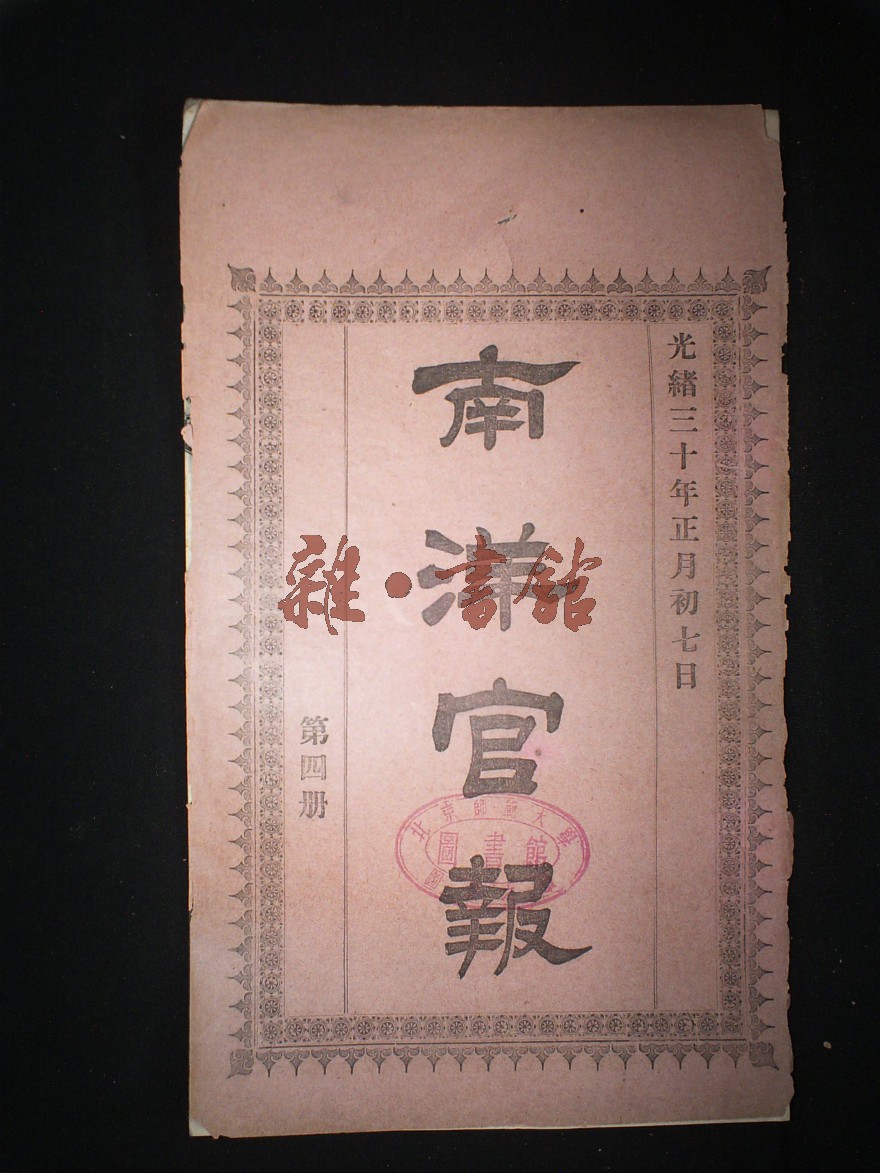 光緒三十年正月初七日
南洋官報
第四册
雜·書館
北京師範大學
圖書館